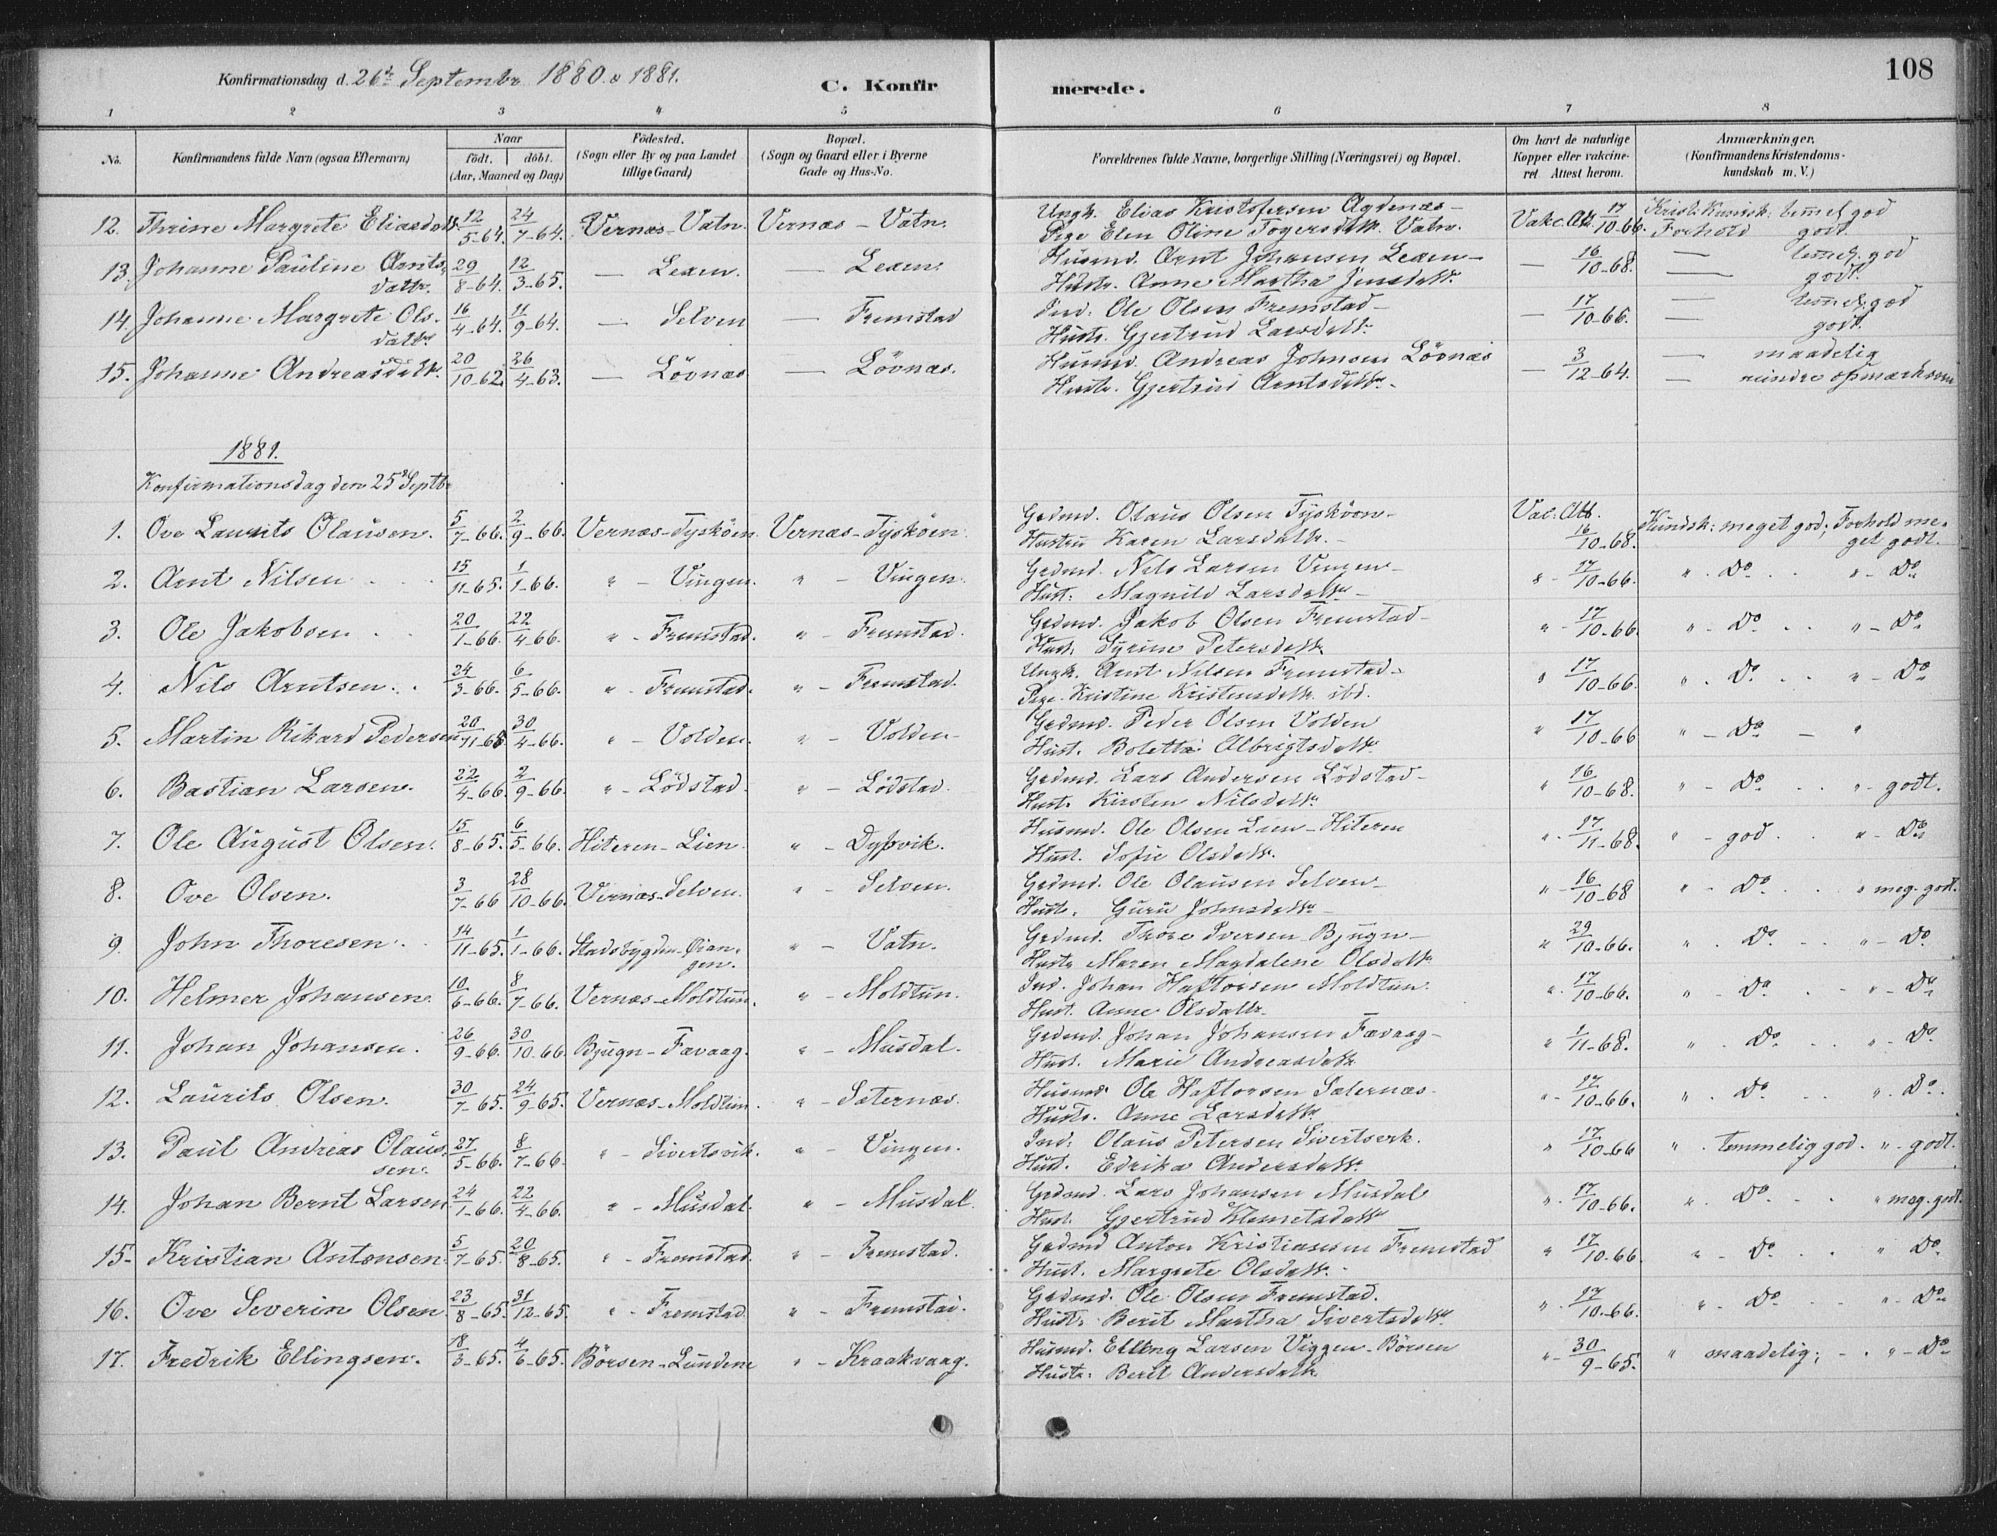 Konfirmationsdag d. 26de Septembr 1880 & 1881.
C. Konfir
merede.
108
1 2 3 4 5 6 7 8
No.
Konfirmandens fulde Navn (ogsaa Efternavn)
Naar
födt. döbt.
(Aar, Maaned og Dag)
Födested.
(Sogn eller By og paa Landet
tillige Gaard)
Bopæl.
(Sogn og Gaard eller i Byerne
Gade og Hus-No.
Forældrenes fulde Navne, borgerlige Stilling (Næringsvei) og Bopæl.
Om havt de naturlige
Kopper eller vakcine-
ret. Attest herom.
Anmærkninger,
(Konfirmandens Kristendoms-
kundskab m. V.)
12. Thrine Margrete Eliasdatr. 12/5-64. 24/7-64. Vernæs-Vatn. Vernæs - Vatn. Ungk. Elias Kristofersen Agdenæs- Vakc. Att. 17/10-66. Krist: Kundsk: temmel. god
Pige Elen Oline Togersdatr. Vatn. Forhold godt.
13. Johanne Pauline Arnts- 29/8-64. 12/3-65. — Lexen. — Lexen. Husmd. Arnt Johansen Lexen- — 16/10-68. — temmel. god
datter. Hustr. Anne Martha Jensdatr. — godt.
14. Johanne Margrete Ols- 16/4-64. 11/9-64. — Selven — Fremstad Ind: Ole Olsen Fremstad- — 17/10-66. — temmel. god
datter Hustr. Gjertrud Larsdatr. — godt.
15. Johanne Andreasdatr. 20/10-62. 26/4-63. — Lövnæs — Lövnæs. Husmd. Andreas Johnsen Lövnæs — 3/12-64. — maadelig
Hustr. Gjertrud Arntsdatr.- — mindre opmærksom
1881.
Konfirmationsdag den 25de Septbr
1. Ove Laurits Olausen. 5/7-66. 2/9-66. Vernæs-Tysköen. Vernæs-Tysköen. Grdmd. Olaus Olsen Tysköen- Vac: Att. 16/10-68. Kundsk: meget god; Forhold me-
Hustru Karen Larsdatr.- get godt.
2. Arnt Nilsen 15/11-65. 1/1-66. " - Vingen. " - Vingen. Grdmd. Nils Larsen Vingen- " - 17/10-66. " - Do. " - Do
Hust. Magnild Larsdatr-
3. Ole Jakobsen 20/1-66. 22/4-66. " - Fremstad. " - Fremstad. Grdmd. Jakob Olsen Fremstad- " - 17/10-66. " - Do. " - Do
Hust. Syrine Petersdatr
4. Nils Arntsen. 24/3-66. 6/5-66. " - Fremstad. " - Fremstad. Ungk. Arnt Nilsen Fremstad- " 17/10-66. " - Do. " - Do
Pige Kristine Kristensdatr. ibd.
5. Martin Rikard Pedersen 20/11-65 30/4-66. " - Volden. " - Volden- Grdmd. Peder Olsen Volden " 17/10-66 " - Do - "
Hust. Boletta Albrigtsdatr
6. Bastian Larsen. 22/4-66. 2/9-66. " - Lödstad. " - Lödstad. Grdmd. Lars Andersen Lödstad- " 16/10-68. " - Do. " - godt.
Hust. Kirsten Nilsdatr
7. Ole August Olsen. 15/8-65. 6/5-66. Hiteren-Lien. " - Dypvik. Husmd. Ole Olsen Lien-Hiteren " - 17/11-68. " - god " - Do
Hust. Sofie Olsdatr.
8. Ove Olsen. 3/7-66 28/10-66. Vernæs-Selven. " - Selven. Grdmd. Ole Olausen Selven- " - 16/10-68 " - Do " meg. godt.
Hust. Guru Johnsdatr-
9. John Thoresen. 14/11-65. 1/1-66. Stadsbygden-Øian- " - Vatn. Grdmd. Thore Iversen Bjugn- " 29/10-66. " . Do " - Do
gen. Hustr Maren Magdalene Olsdatr.
10. Helmer Johansen. 10/6-66. 8/7-66. Vernæs-Moldtun. " - Moldtun. Ind. Johan Haftorsen Moldtun. " 17/10-66. " - Do. " - Do
Hust. Anne Olsdatr.
11. Johan Johansen. 26/9-66. 30/10-66. Bjugn-Fævaag. " - Musdal. Grdmd. Johan Johansen Fævaag- " 1/11-68. " . Do " - Do
Hust. Marie Andreasdatr.
12. Laurits Olsen. 30/7-65. 24/9-65. Vernæs-Moldtun. " - Sæternæs. Husmd. Ole Haftorsen Sæternæs- " - 17/10-66. " . Do " . Do.
Hustr. Anne Larsdatr
13. Paul Andreas Olaus- 27/5-66. 8/7-66. " - Sivertsvik. " - Vingen. Ind: Olaus Petersen Sivertsvik. " 17/10-66 " . temmelig god. " - godt.
sen. Hust. Edrika Andersdatr.
14. Johan Bernt Larsen 24/1-66. 22/4-66. " - Musdal. " - Musdal. Grdmd. Lars Johansen Musdal " 17/10-66. " . Do " meg. godt.
Hust. Gjertrud Klemetsdatr
15. Kristian Antonsen. 5/7-65. 20/8-65. " - Fremstad. " - Fremstad. Grdmd Anton Kristiansen Fremstad " 17/10-66 " - Do. " Do.
Hust. Margrete Olsdatr.
16. Ove Severin Olsen 23/8-65. 31/12-65. " - Fremstad " - Fremstad. Grdmd. Ole Olsen Fremstad. " . 17/10-66. " . Do. " - Do
Hustr. Berit Martha Sivertsdatr.
17. Fredrik Ellingsen. 18/3-65. 4/6-65. Börsen-Lundene " - Kraakvaag. Husmd. Elling Larsen Viggen-Börsen " - 30/9-65. " maadelig; - " - Do
Hustr. Berit Andersdatr